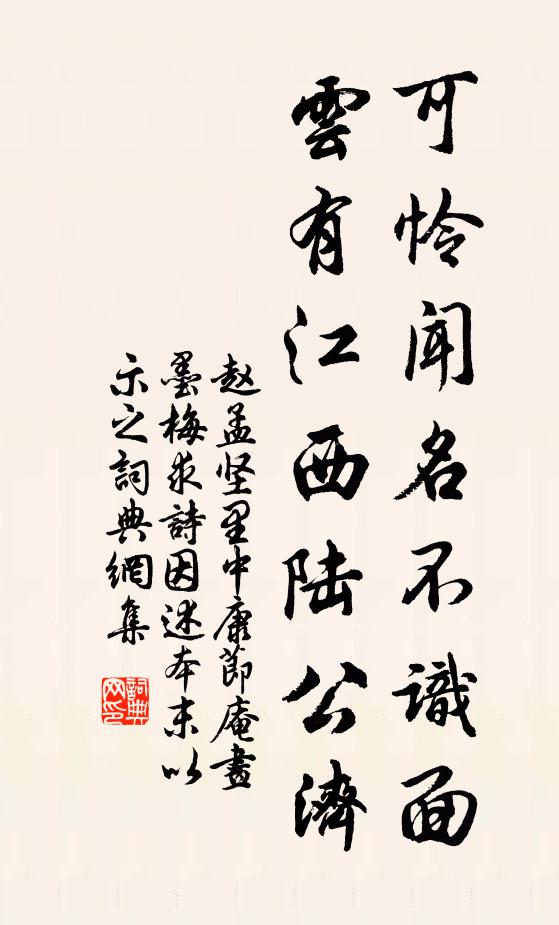 可怜闻名不識面
雲有江西陆公濟
赵孟坚里中康節庵畫
墨梅求詩因述本末以
示之詞典網集
詞典网印